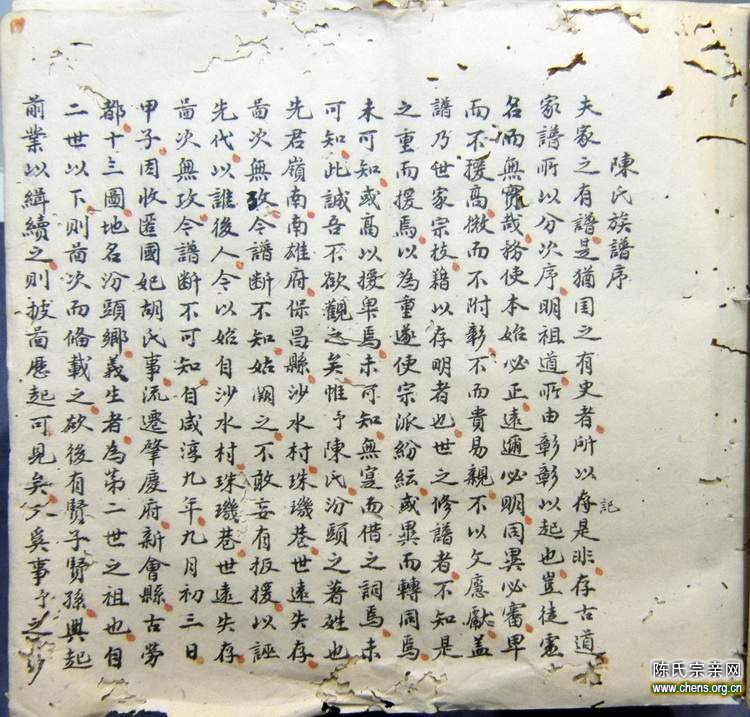 陳氏族譜序
夫家之有譜是猶国之有史者所以存是非存古道
記
家譜所以分次序明祖道所由彰彰以起也豈徒虛
名而無實哉務使本始必正遠邇必明同異必審卑
而不援高微而不附彰不而貴易親不以文應獻盖
譜乃世家宗枝藉以存明者也世之修譜者不知是
之重而援焉以為重遂使宗派紛紜或異而轉同焉
未可知或高以援卑焉未可知無寔而借之詞焉未
可知此誠吾不欲觀之矣惟予陳氏汾頭之著姓也
先君嶺南南雄府保昌縣沙水村珠璣巷世遠失存
啚次無攷令譜断不知姑闕之不敢妄有扳援以誣
先代以誰後人今以始自沙水村珠璣巷世遠失存
啚次無攷令譜断不可知自咸淳九年九月初三日
甲子因收匿國妃胡氏事流遷肇慶府新會縣古勞
都十三圖地名汾頭鄉義生者為第二世之祖也自
二世以下則啚次而俻載之欲後有賢子賢孫興起
前業以緝續之則披啚歷起可見矣不奚事予之
陈氏宗亲网
www.chens.org.cn